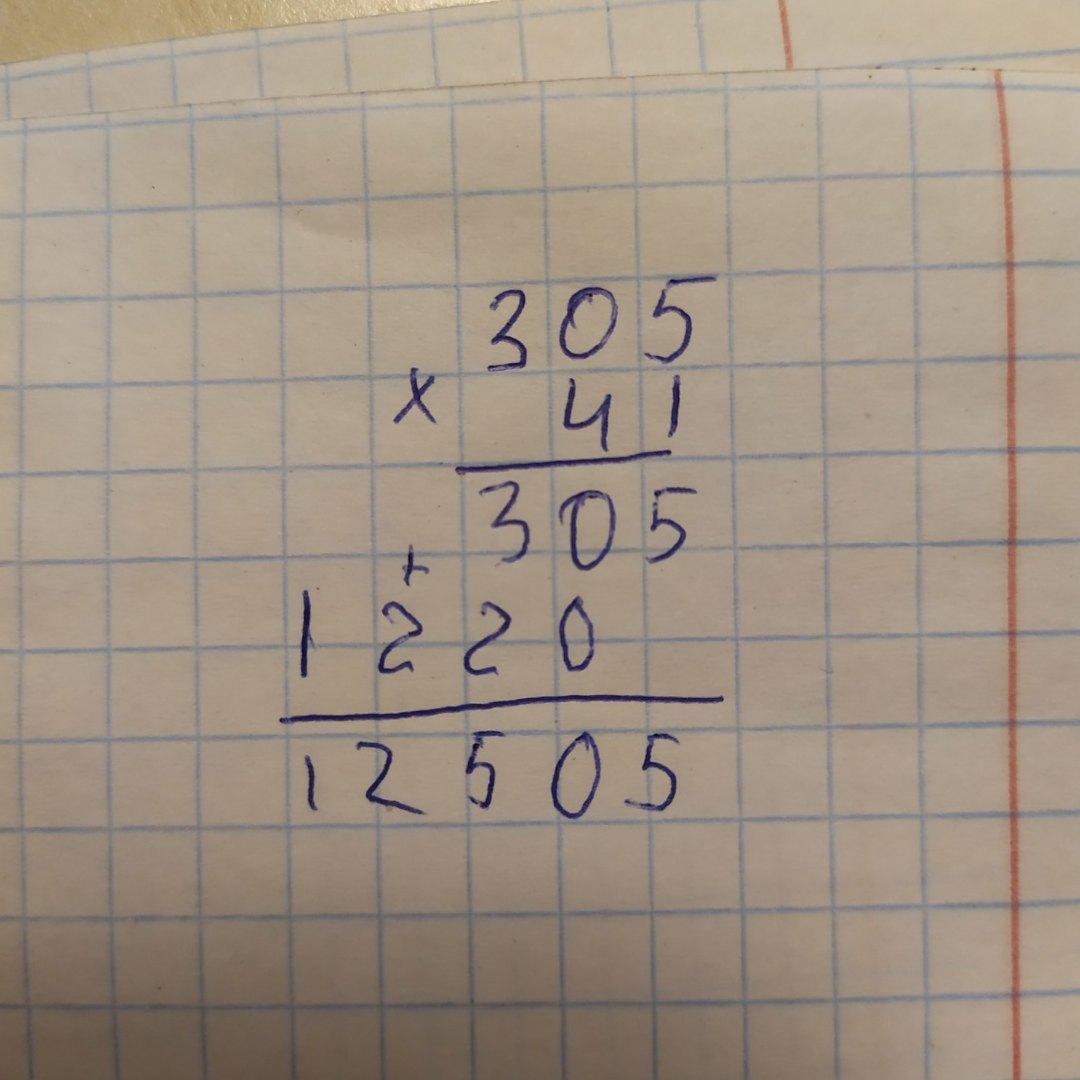 305
x 41
305
+
1220
12505